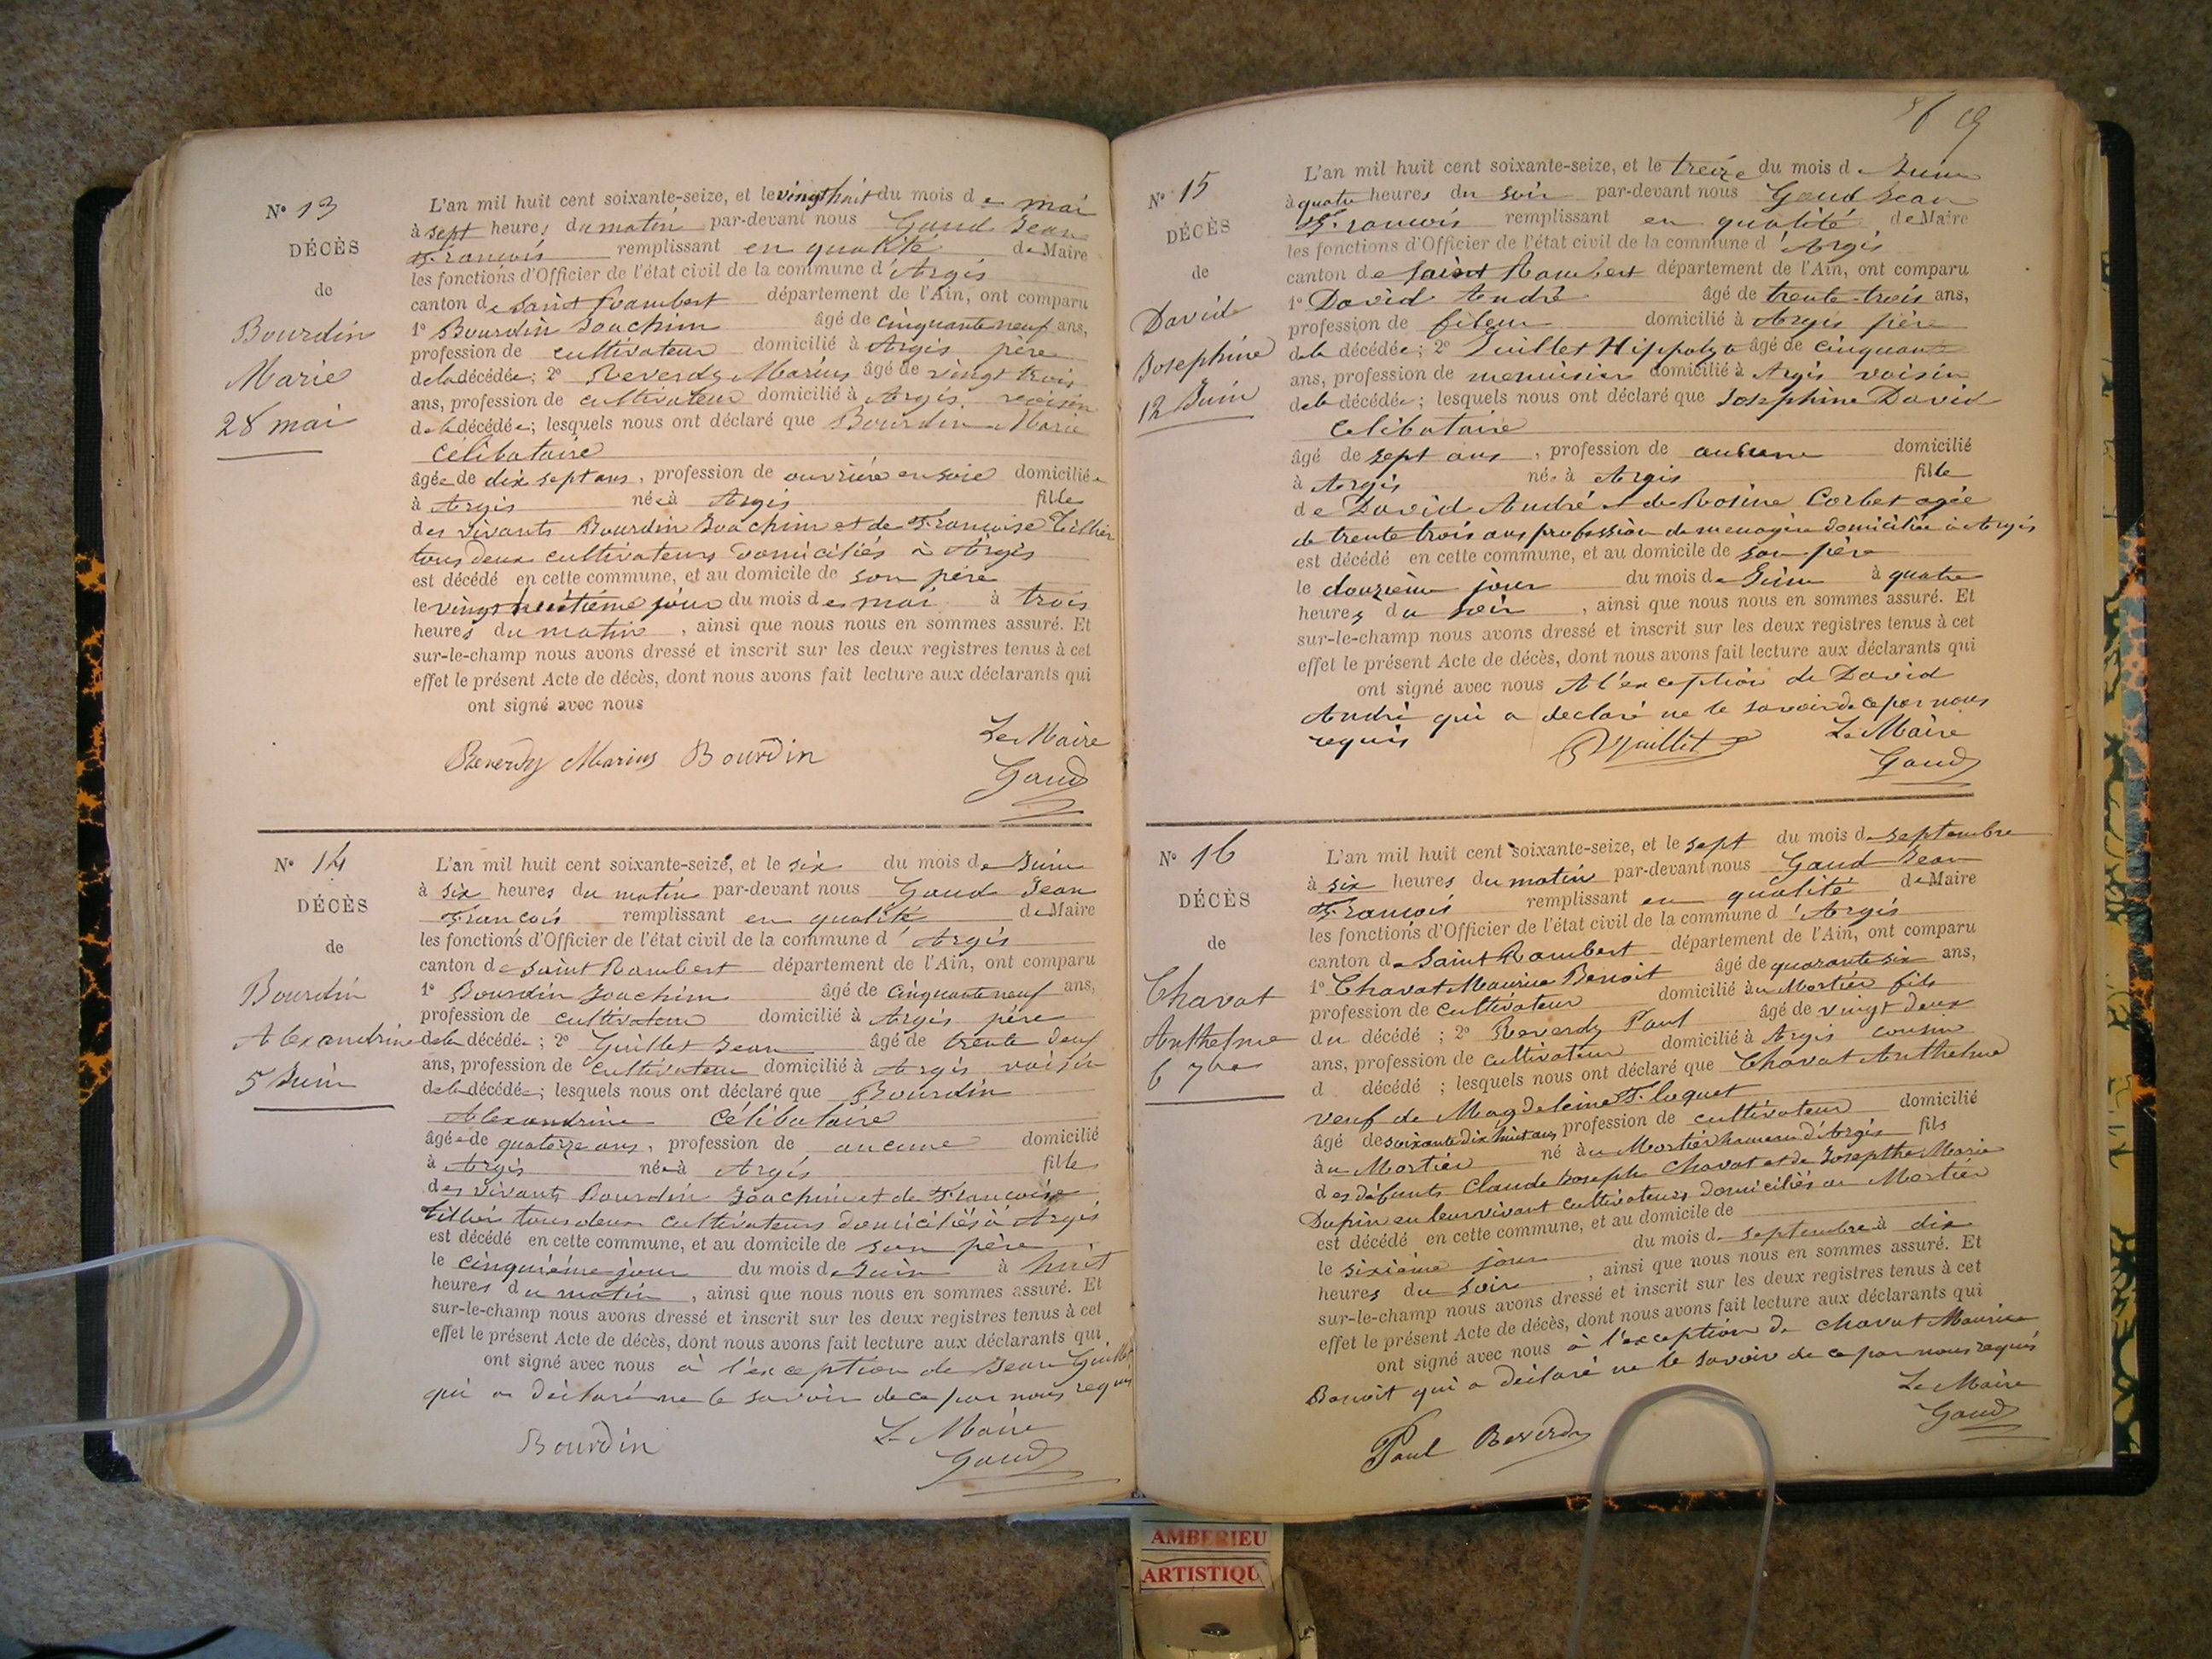 N° 13
DÉCÈS
de
Bourdin
Marie
28 mai
L'an mil huit cent soixante-seize, et le vingt huit du mois de mai
à sept heures du matin par-devant nous Gaud Jean
François remplissant en qualité de Maire
les fonctions d'Officier de l'état civil de la commune d'Argis
canton de Saint Rambert département de l'Ain, ont comparu
1° Bourdin Joachim âgé de cinquante neuf ans,
profession de cultivateur domicilié à Argis père
de la décédée; 2° Reverdy Marius âgé de vingt trois
ans, profession de cultivateur domicilié à Argis voisin
de la décédée; lesquels nous ont déclaré que Bourdin Marie
célibataire
âgée de dix sept ans, profession de ouvrière en soie domiciliée
à Argis née à Argis fille
des vivants Bourdin Joachim et de Françoise Tillier
tous deux cultivateurs domiciliés à Argis
est décédé en cette commune, et au domicile de son père
le vingt huitième jour du mois de mai à trois
heures du matin, ainsi que nous nous en sommes assuré. Et
sur-le-champ nous avons dressé et inscrit sur les deux registres tenus à cet
effet le présent Acte de décès, dont nous avons fait lecture aux déclarants qui
ont signé avec nous
Le Maire
Reverdy Marius Bourdin
Gaud
N° 14
DÉCÈS
de
Bourdin
Alexandrine
5 Juin
L'an mil huit cent soixante-seize, et le six du mois de Juin
à six heures du matin par-devant nous Gaud Jean
François remplissant en qualité de Maire
les fonctions d'Officier de l'état civil de la commune d'Argis
canton de Saint Rambert département de l'Ain, ont comparu
1° Bourdin Joachim âgé de cinquante neuf ans,
profession de cultivateur domicilié à Argis père
de la décédée; 2° Guillet Jean âgé de trente deux
ans, profession de cultivateur domicilié à Argis voisin
de la décédée; lesquels nous ont déclaré que Bourdin
Alexandrine célibataire
âgée de quatorze ans, profession de aucune domicilié
à Argis née à Argis fille
des vivants Bourdin Joachim et de Françoise
Tillier tous deux cultivateurs domiciliés à Argis
est décédé en cette commune, et au domicile de son père
le cinquième jour du mois de Juin à huit
heures du matin, ainsi que nous nous en sommes assuré. Et
sur-le-champ nous avons dressé et inscrit sur les deux registres tenus à cet
effet le présent Acte de décès, dont nous avons fait lecture aux déclarants qui
ont signé avec nous à l'exception de Jean Guillet
qui a déclaré ne le savoir de ce par nous requis
Bourdin
Le Maire
Gaud
N° 15
DÉCÈS
de
David
Josephine
12 Juin
L'an mil huit cent soixante-seize, et le treize du mois de Juin
à quatre heures du soir par-devant nous Gaud Jean
François remplissant en qualité de Maire
les fonctions d'Officier de l'état civil de la commune d'Argis
canton de Saint Rambert département de l'Ain, ont comparu
1° David André âgé de trente-trois ans,
profession de fileur domicilié à Argis père
de la décédée; 2° Juillet Hippolyte âgé de cinquante
ans, profession de menuisier domicilié à Argis voisin
de la décédée; lesquels nous ont déclaré que Josephine David
célibataire
âgé de sept ans, profession de aucune domicilié
à Argis née à Argis fille
de David André et de Rosine Corbet agée
de trente trois ans profession de menagère domiciliée à Argis
est décédé en cette commune, et au domicile de son père
le douzième jour du mois de Juin à quatre
heures du soir, ainsi que nous nous en sommes assuré. Et
sur-le-champ nous avons dressé et inscrit sur les deux registres tenus à cet
effet le présent Acte de décès, dont nous avons fait lecture aux déclarants qui
ont signé avec nous A l'exception de David
André qui a declaré ne le savoir de ce par nous
requis
Le Maire
Gaud
N° 16
DÉCÈS
de
Chavat
Anthelme
6 7bre
L'an mil huit cent soixante-seize, et le sept du mois de septembre
à six heures du matin par-devant nous Gaud Jean
François remplissant en qualité de Maire
les fonctions d'Officier de l'état civil de la commune d'Argis
canton de Saint Rambert département de l'Ain, ont comparu
1° Chavat Maurice Benoit âgé de quarante six ans,
profession de cultivateur domicilié au Mortier fils
du décédé; 2° Reverdy Paul âgé de vingt deux
ans, profession de cultivateur domicilié à Argis cousin
d décédé; lesquels nous ont déclaré que Chavat Anthelme
veuf de Magdeleine Floquet
âgé de soixante dix huit ans profession de cultivateur domicilié
au Mortier né au Mortier hameau d'Argis fils
des défunts Claude Joseph Chavat et de Josepthe Marie
Dupin en leur vivant cultivateurs domiciliés au Mortier
est décédé en cette commune, et au domicile de
le sixième jour du mois de septembre à dix
heures du soir, ainsi que nous nous en sommes assuré. Et
sur-le-champ nous avons dressé et inscrit sur les deux registres tenus à cet
effet le présent Acte de décès, dont nous avons fait lecture aux déclarants qui
ont signé avec nous à l'exception de Chavat Maurice
Benoit qui a déclaré ne le savoir de ce par nous requis
Le Maire
Paul Reverdy
Gaud
AMBERIEU
ARTISTIQU